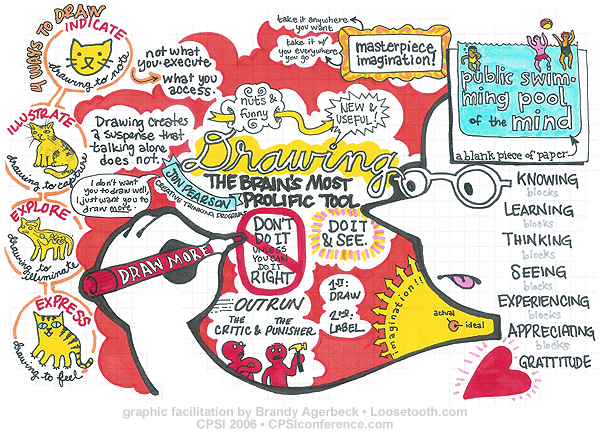 4 WAYS TO DRAW
INDICATE
drawing to note
ILLUSTRATE
drawing to capture
EXPLORE
drawing to illuminate
EXPRESS
drawing to feel
not what
you execute
what you
access.
Drawing creates
a suspense that
talking alone
does not.
I don't want
you to draw well,
I just want you to
draw more.
JON PEARSON
CREATIVE THINKING PROGRAMS
take it anywhere
you want
take it w/
you everywhere
you go
masterpiece
imagination!
nuts &
funny
NEW &
USEFUL!
Drawing
THE BRAIN'S MOST
PROLIFIC TOOL
DRAW MORE
DON'T
DO IT
UNLESS
YOU CAN
DO IT
RIGHT
DO IT
& SEE.
OUTRUN
THE THE
CRITIC & PUNISHER
1st:
DRAW
2nd:
LABEL
imagination!!
actual
ideal
public swim-
ming pool
of the mind
a blank piece of paper
KNOWING
blocks
LEARNING
blocks
THINKING
blocks
SEEING
blocks
EXPERIENCING
blocks
APPRECIATING
blocks
GRATTITUDE
graphic facilitation by Brandy Agerbeck • Loosetooth.com
CPSI 2006 • CPSIconference.com